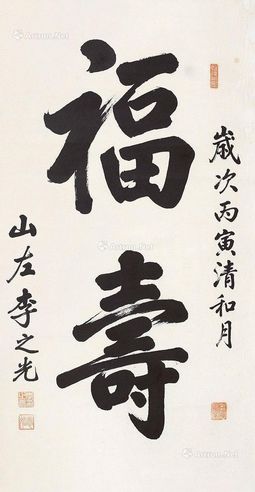 歲次丙寅清和月
福壽
山左李之光